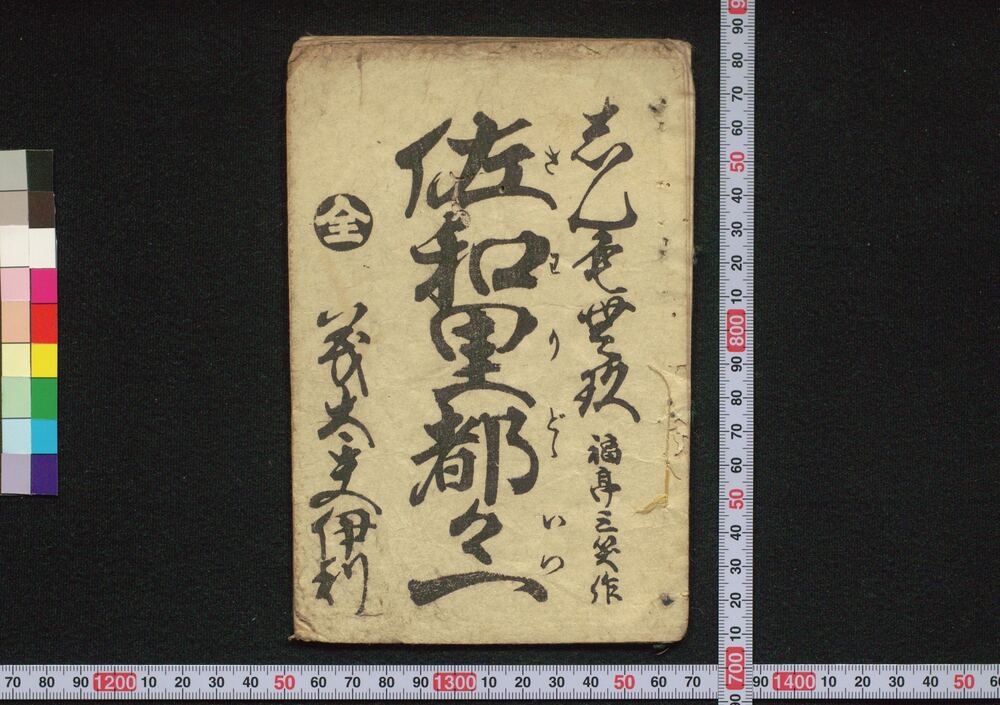 志ん毛無玖 福亭三笑作
さわりどゝいつ
佐和里都々一
全
義太夫伊利
70 80 90 1200 10 20 30 40 50 60 70 80 90 1300 10 20 30 40 50 60 70
90 1400 10 20 30 40 50
90 80 70 60 50 40 30 20 10 800 90 80 70 60 50 40 30 20 10 700 90